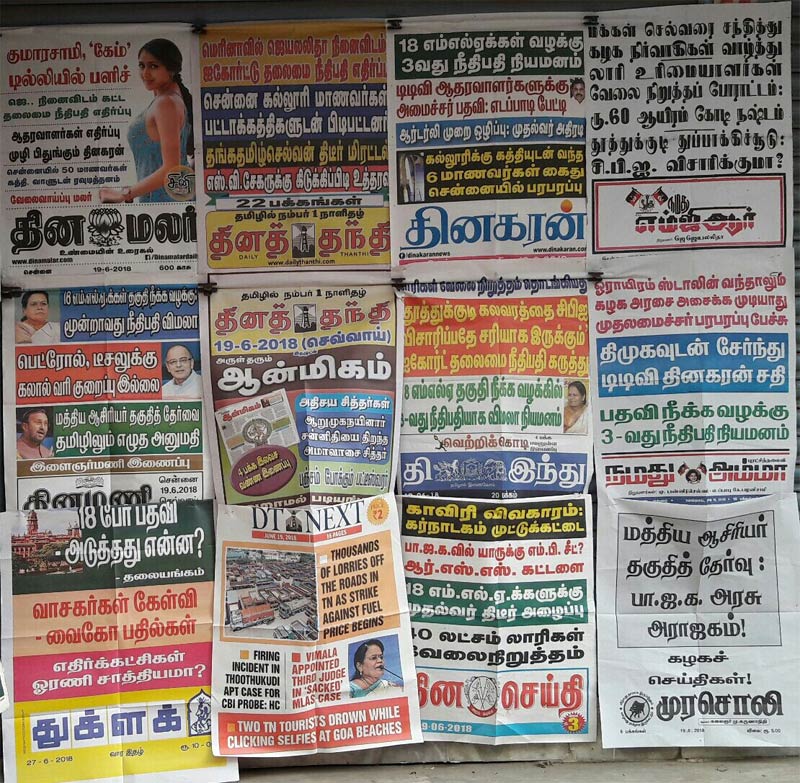 குமாரசாமி, 'கேம்'
டில்லியில் பளிச்
ஜெ., நினைவிடம் கட்ட
தலைமை நீதிபதி எதிர்ப்பு
ஆதரவாளர்கள் எதிர்ப்பு
முழி பிதுங்கும் தினகரன்
சென்னையில் 50 மாணவர்கள்
கத்தி, வாளுடன் ரவுடித்தனம்
வேலைவாய்ப்பு மலர்
தின மலர்
உண்மையின் உரைகல்
www.dinamalar.com
f/Dinamalardaily
சென்னை 19-6-2018 600 காசு
மெரினாவில் ஜெயலலிதா நினைவிடம்
ஐகோர்ட்டு தலைமை நீதிபதி எதிர்ப்பு
சென்னை கல்லூரி மாணவர்கள்
பட்டாக்கத்திகளுடன் பிடிபட்டனர்
தங்கதமிழ்செல்வன் திடீர் மிரட்டல்
எஸ்.வி.சேகருக்கு கிடுக்கிப்பிடி உத்தரவு
22 பக்கங்கள்
தமிழில் நம்பர் 1 நாளிதழ்
தினத் தந்தி
DAILY THANTHI
www.dailythanthi.com
18 எம்எல்ஏக்கள் வழக்கு
3வது நீதிபதி நியமனம்
டிடிவி ஆதரவாளர்களுக்கு
அமைச்சர் பதவி: எடப்பாடி பேட்டி
ஆர்டர்லி முறை ஒழிப்பு: முதல்வர் அதிரடி
கல்லூரிக்கு கத்தியுடன் வந்த
6 மாணவர்கள் கைது
சென்னையில் பரபரப்பு
தினகரன்
f/dinakarannews
www.dinakaran.com
மக்கள் செல்வரை சந்தித்து
கழக நிர்வாகிகள் வாழ்த்து
லாரி உரிமையாளர்கள்
வேலை நிறுத்தப் போராட்டம்:
ரூ.60 ஆயிரம் கோடி நஷ்டம்
தூத்துக்குடி துப்பாக்கிச்சூடு:
சி.பி.ஐ. விசாரிக்குமா?
எம்ஜிஆர்
ஜெ.ஜெயலலிதா
18 எம்எல்ஏக்கள் தகுதி நீக்க வழக்கு
மூன்றாவது நீதிபதி விமலா
பெட்ரோல், டீசலுக்கு
கலால் வரி குறைப்பு இல்லை
மத்திய ஆசிரியர் தகுதித் தேர்வை
தமிழிலும் எழுத அனுமதி
இளைஞர்மணி இணைப்பு
தினமணி
சென்னை
19.6.2018
தமிழில் நம்பர் 1 நாளிதழ்
தினத் தந்தி
19-6-2018 (செவ்வாய்)
அருள் தரும்
ஆன்மிகம்
அதிசய சித்தர்கள்
ஆறுமுகநயினார்
சன்னதியை திறந்த
அமாவாசை சித்தர்
4 பக்க இலவச
வண்ண இணைப்பு
லாரிகள் வேலை நிறுத்தம் தொடங்கியது
தூத்துக்குடி கலவரத்தை சிபிஐ
விசாரிப்பதே சரியாக இருக்கும்
ஐகோர்ட் தலைமை நீதிபதி கருத்து
18 எம்எல்ஏ தகுதி நீக்க வழக்கில்
3-வது நீதிபதியாக விமலா நியமனம்
வெற்றிக்கொடி
இந்து
20 பக்கம்
ஓராயிரம் ஸ்டாலின் வந்தாலும்
கழக அரசை அசைக்க முடியாது
முதலமைச்சர் பரபரப்பு பேச்சு
திமுகவுடன் சேர்ந்து
டிடிவி தினகரன் சதி
பதவி நீக்க வழக்கு
3-வது நீதிபதி நியமனம்
நமது அம்மா
18 பேர் பதவி
- அடுத்தது என்ன?
- தலையங்கம்
வாசகர்கள் கேள்வி
- வைகோ பதில்கள்
எதிர்க்கட்சிகள்
ஓரணி சாத்தியமா?
துக்ளக்
27-6-2018 வார இதழ் ரூ.10-0
DT NEXT
₹2
JUNE 19, 2018
16 PAGES
THOUSANDS
OF LORRIES OFF
THE ROADS IN
TN AS STRIKE
AGAINST FUEL
PRICE BEGINS
FIRING
INCIDENT IN
THOOTHUKUDI
APT CASE FOR
CBI PROBE: HC
VIMALA
APPOINTED
THIRD JUDGE
IN 'SACKED'
MLAS CASE
TWO TN TOURISTS DROWN WHILE
CLICKING SELFIES AT GOA BEACHES
காவிரி விவகாரம்:
கர்நாடகம் முட்டுக்கட்டை
பா.ஜ.க.வில் யாருக்கு எம்.பி. சீட்?
ஆர்.எஸ்.எஸ். கட்டளை
18 எம்.எல்.ஏ.க்களுக்கு
முதல்வர் திடீர் அழைப்பு
40 லட்சம் லாரிகள்
வேலைநிறுத்தம்
தின செய்தி
19-06-2018
3
மத்திய ஆசிரியர்
தகுதித் தேர்வு :
பா.ஜ.க. அரசு
அராஜகம்!
கழகச்
செய்திகள்!
முரசொலி
6 பக்கங்கள் 19.6.2018 விலை ரூ.5.00